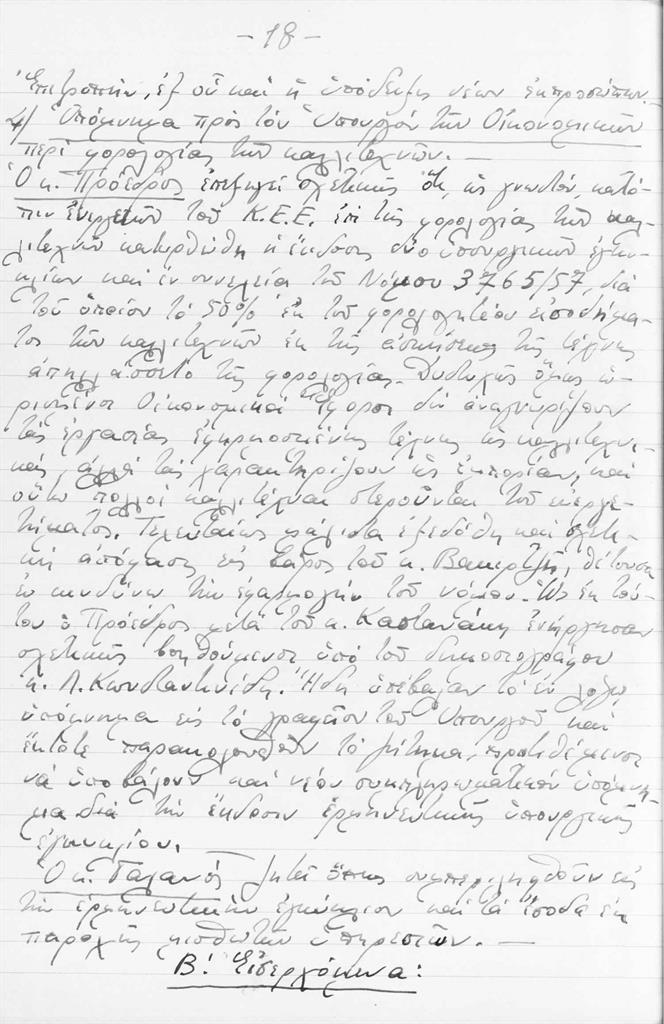 - 18 -
Ἐπιτροπήν, ἐξ οὗ καί ἡ ὑπόδειξις νέων ἐκπροσώπων.-
4/ Ὑπόμνημα πρός τόν Ὑπουργόν τῶν Οἰκονομικῶν
περί φορολογίας τῶν καλλιτεχνῶν. —
Ὁ κ. Πρόεδρος ἐπεξηγεῖ σχετικῶς ὅτι, ὡς γνωστόν, κατό-
πιν ἐνεργειῶν τοῦ Κ.Ε.Ε. ἐπί τῆς φορολογίας τῶν καλ-
λιτεχνῶν κατωρθώθη ἡ ἔκδοσις δύο ὑπουργικῶν ἐγκυ-
κλίων καί ἐν συνεχείᾳ τοῦ Νόμου 3765/57, διά
τοῦ ὁποίου τό 50% ἐκ τοῦ φορολογητέου εἰσοδήμα-
τος τῶν καλλιτεχνῶν ἐκ τῆς ἀσκήσεως τῆς τέχνης
ἀπηλλάσσετο τῆς φορολογίας. Δυστυχῶς ὅμως ὡ-
ρισμένοι Οἰκονομικοί Ἔφοροι δέν ἀναγνωρίζουν
τάς ἐργασίας ἐφηρμοσμένης τέχνης ὡς καλλιτεχνι-
κάς, ἀλλά τάς χαρακτηρίζουν ὡς ἐμπορίαν, καί
οὕτω πολλοί καλλιτέχναι στεροῦνται τοῦ εὐεργε-
τήματος. Τελευταίως μάλιστα ἐξεδόθη καί σχετι-
κή ἀπόφασις εἰς βάρος τοῦ κ. Βακιρτζῆ, θέτουσα
ἐν κινδύνῳ τήν ἐφαρμογήν τοῦ νόμου. Ὡς ἐκ τού-
του ὁ Πρόεδρος μετά τοῦ κ. Καστανάκη ἐνήργησαν
σχετικῶς βοηθούμενοι ὑπό τοῦ δημοσιογράφου
κ. Λ. Κωνσταντινίδη. Ἤδη ὑπέβαλαν τό ἐν λόγῳ
ὑπόμνημα εἰς τό γραφεῖον τοῦ Ὑπουργοῦ καί
ἔκτοτε παρακολουθοῦν τό ζήτημα, προτιθέμενοι
νά ὑποβάλουν καί νέον συμπληρωματικόν ὑπόμνη-
μα διά τήν ἔκδοσιν ἑρμηνευτικῆς ὑπουργικῆς
ἐγκυκλίου.
Ὁ κ. Γαλανός ζητεῖ ὅπως συμπεριληφθοῦν εἰς
τήν ἑρμηνευτικήν ἐγκύκλιον καί τά ἔσοδα ἐκ
παροχῆς μισθωτῶν ὑπηρεσιῶν. —
Β! Εἰσερχόμενα: